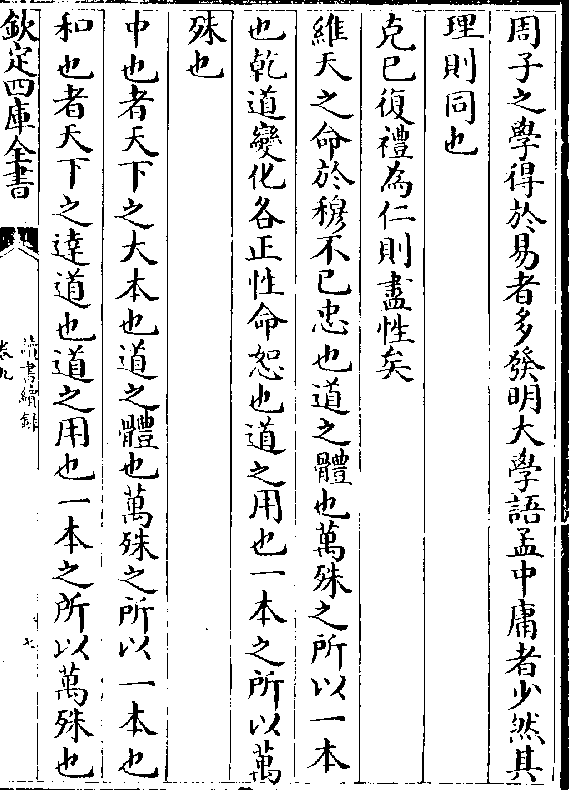 周子之學得於易者多發明大學語孟中庸者少然其
理則同也
克已復禮為仁則盡性矣
維天之命於穆不已忠也道之體也萬殊之所以一本
也乾道變化各正性命恕也道之用也一本之所以萬
殊也
中也者天下之大本也道之體也萬殊之所以一本也
和也者天下之達道也道之用也一本之所以萬殊也
欽定四庫全書
讀書續錄
卷九